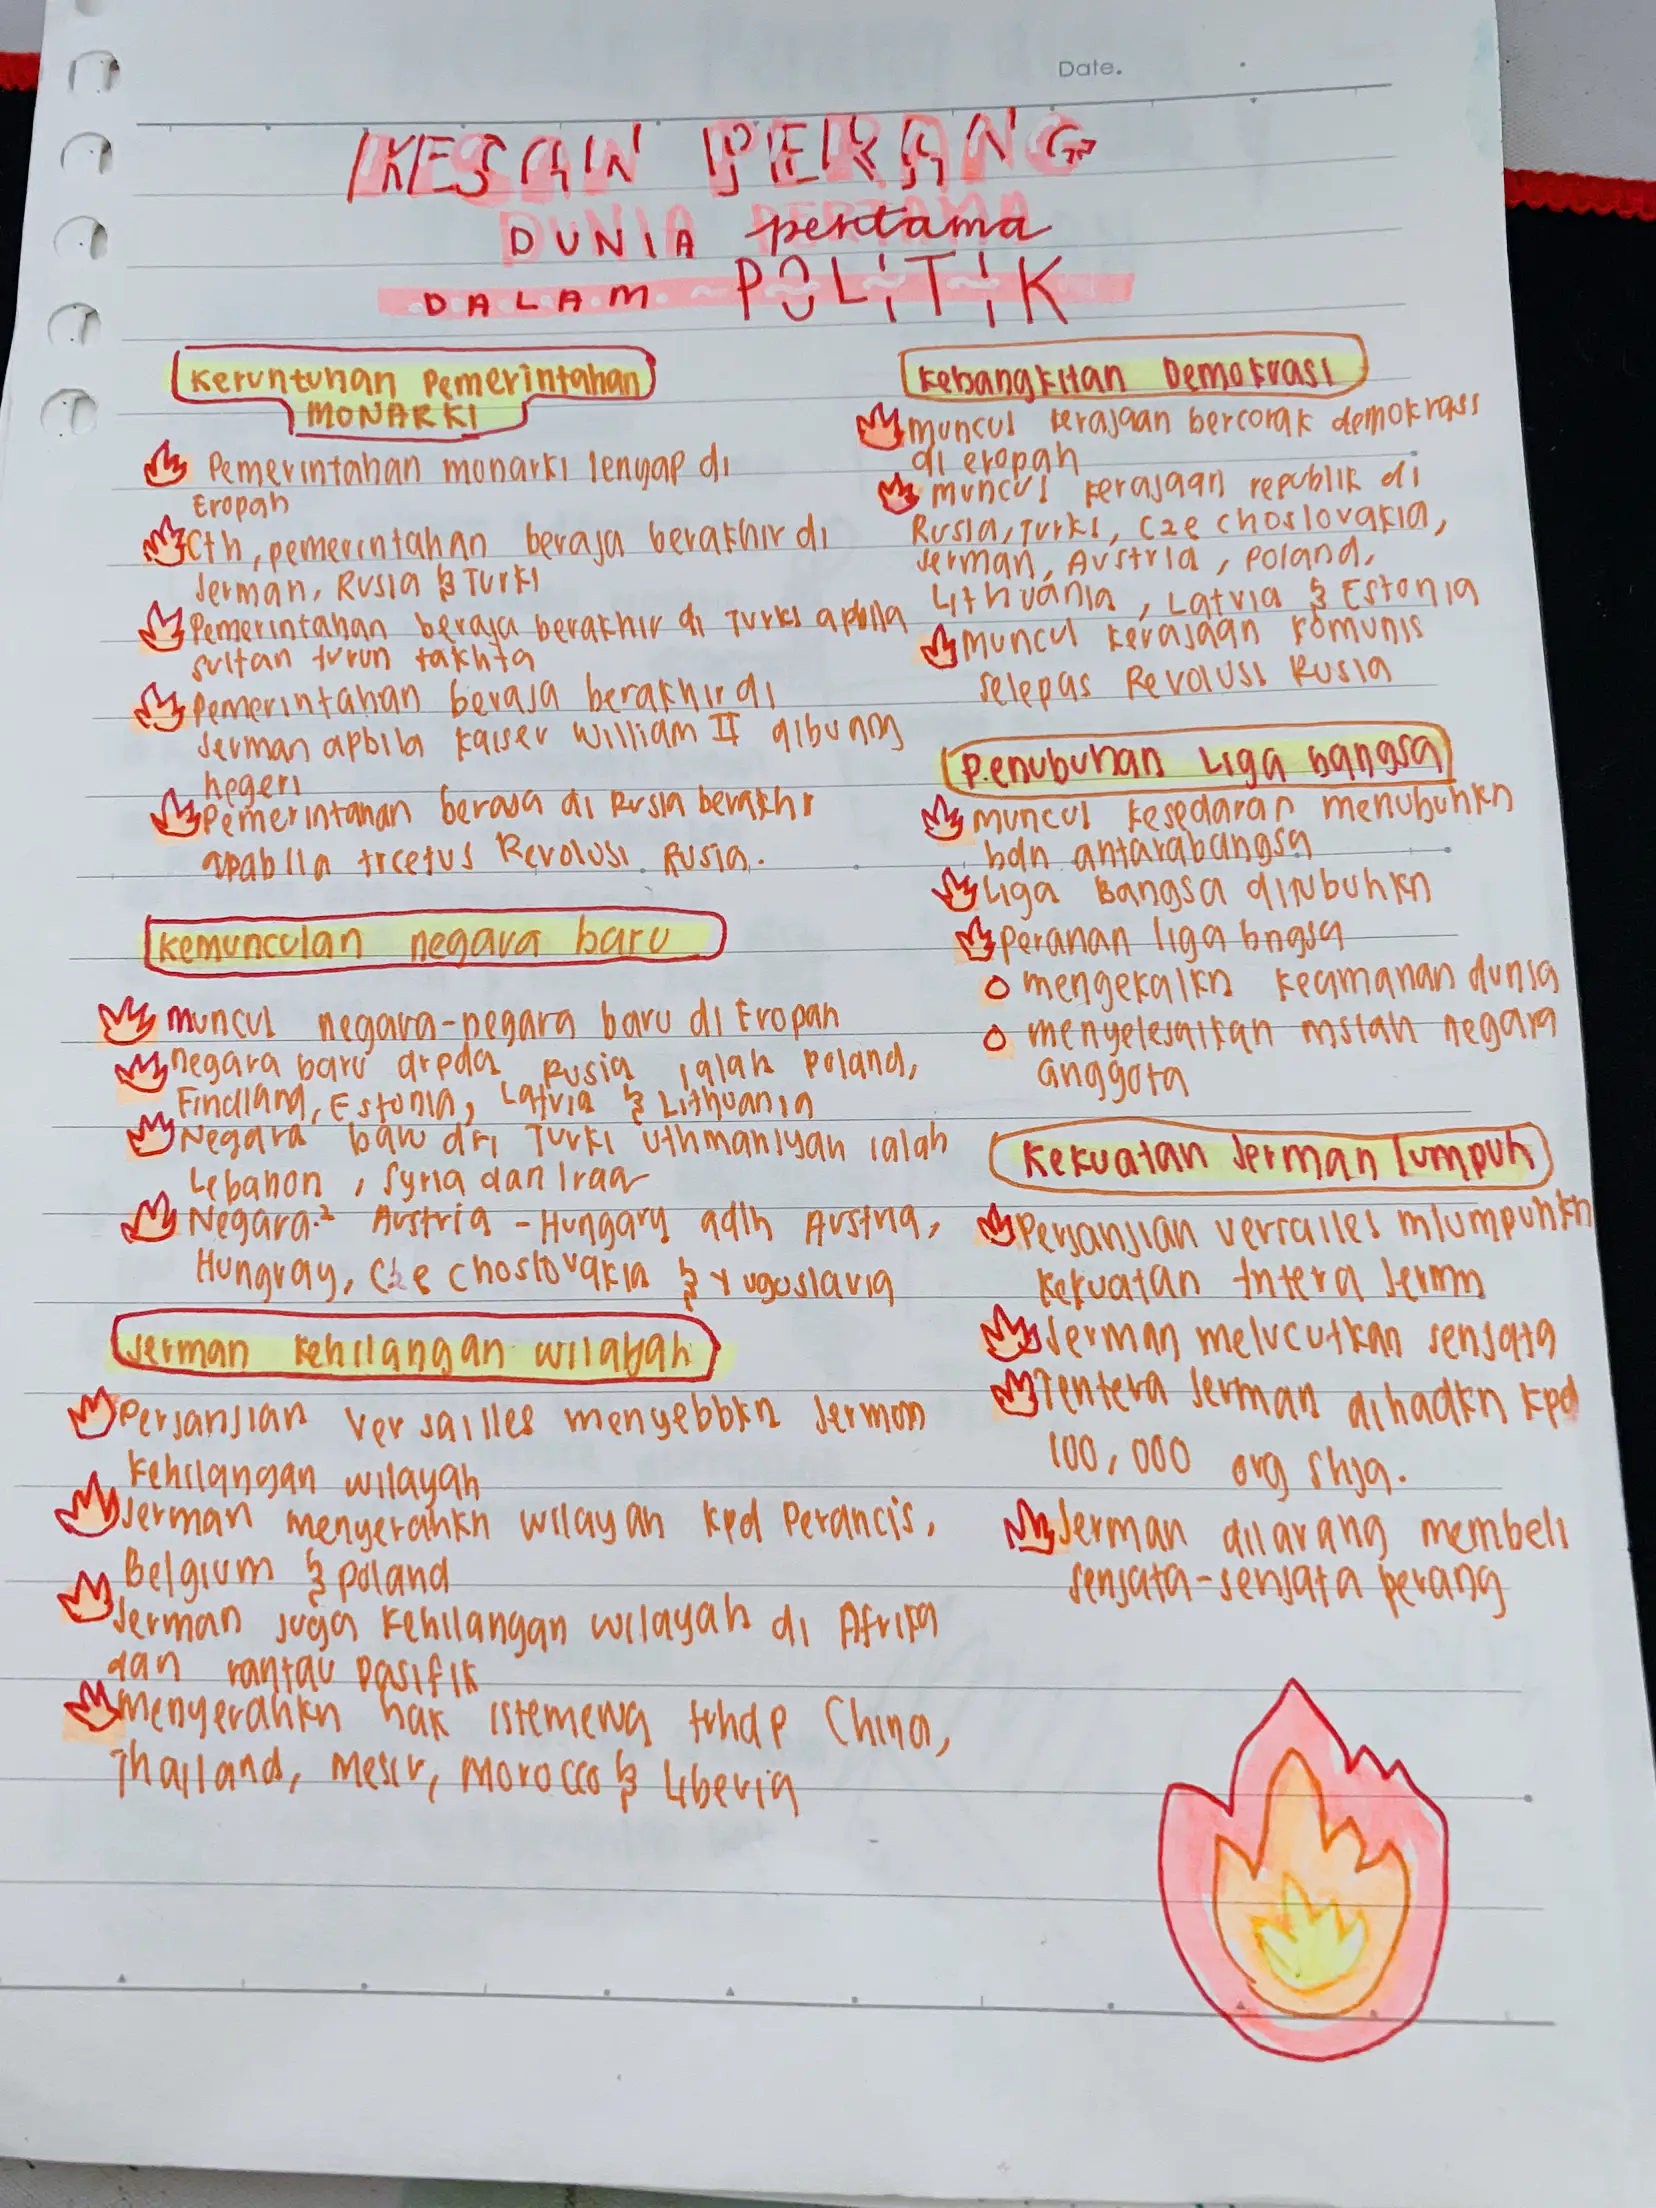 Date.
KESAN PERANG
DUNIA pertama
DALAM POLITIK
Keruntuhan Pemerintahan
MONARKI
Pemerintahan monarki lenyap di
Eropah
Cth, pemerintahan beraja berakhir di
Jerman, Rusia & Turki
Pemerintahan beraja berakhir di Turki apbila
sultan turun takhta
Pemerintahan beraja berakhir di
Jerman apbila kaiser William II dibuang
negeri
Pemerintahan beraja di Rusia berakhir
apabila trcetus Revolusi Rusia.
Kemunculan negara baru
Muncul negara-negara baru di Eropah
negara baru drpda Rusia ialah Poland,
Findland, Estonia, Latvia & Lithuania
Negara baru dri Turki Uthmaniyah ialah
Lebanon, Syria dan Iraq
Negara² Austria-Hungary adlh Austria,
Hungray, Czechoslovakia & Yugoslavia
Jerman kehilangan wilayah
Perjanjian Versailles menyebbkn Jerman
kehilangan wilayah
Jerman menyerahkn wilayah kpd Perancis,
Belgium & Poland
Jerman juga kehilangan wilayah di Afrika
dan rantau Pasifik
Menyerahkn hak istemewa trhdp China,
Thailand, Mesir, Morocco & Liberia
Kebangkitan Demokrasi
muncul kerajaan bercorak demokrasi
di eropah
muncul kerajaan republik di
Rusia, Turki, Czechoslovakia,
Jerman, Austria, Poland,
Lithuania, Latvia & Estonia
muncul kerajaan komunis
selepas Revolusi Rusia
Penubuhan Liga Bangsa
muncul kesedaran menubuhkn
bdn antarabangsa
Liga Bangsa ditubuhkn
Peranan liga bngsa
mengekalkn keamanan dunia
menyelesaikan mslah negara
anggota
Kekuatan Jerman lumpuh
Perjanjian versailles mlumpuhkn
kekuatan tntera Jermn
Jerman melucutkan senjata
Tentera Jerman dihadkn kpd
100,000 org shja.
Jerman dilarang membeli
senjata-senjata perang